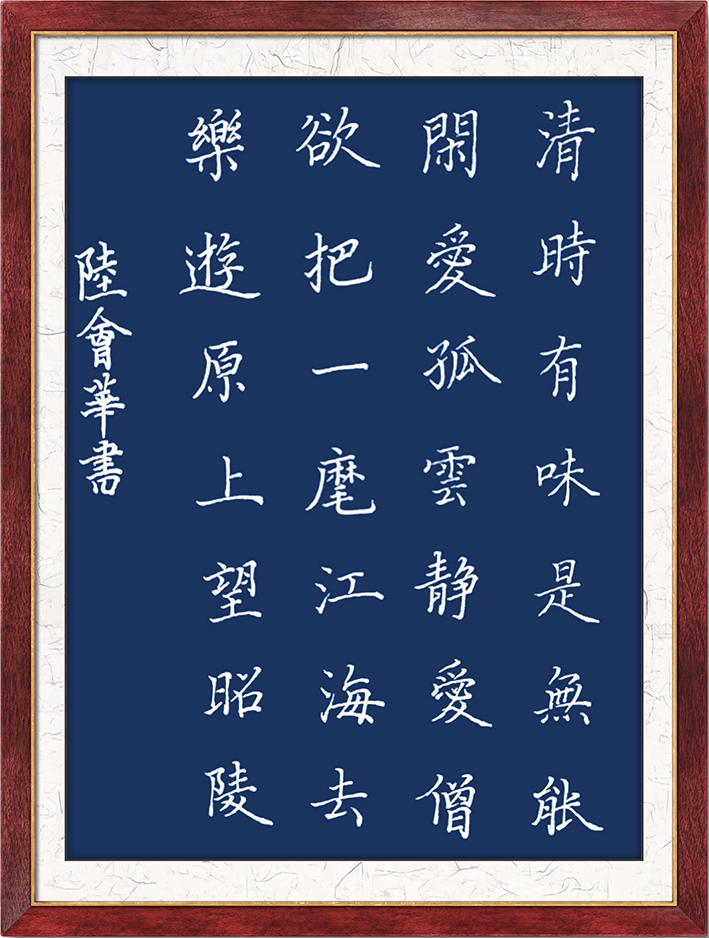 清時有味是無能
閑愛孤雲靜愛僧
欲把一麾江海去
樂遊原上望昭陵
陸會華書